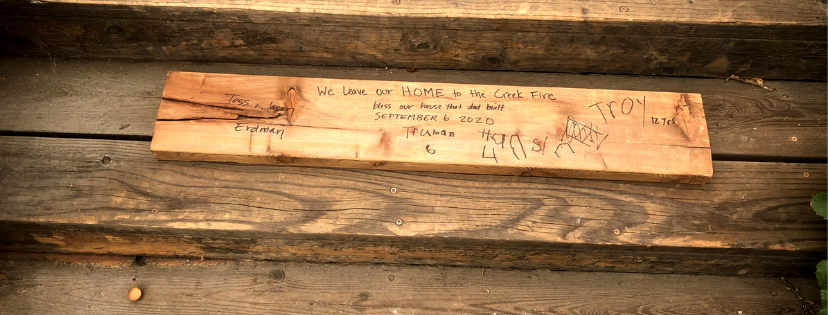 We Leave our HOME to the Creek Fire
bless our house that dad built
SEPTEMBER 6 2020
Tess n Jason
Erdman
Truman
6
4
TROY
12 yrs